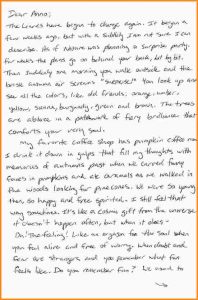 Dear Anna,
The leaves have begun to change again. It began a
few weeks ago, but with a subtlety I am not sure I can
describe. As if Nature was planning a surprise party.
For weeks the plans go on behind your back, bit by bit.
Then suddenly one morning you walk outside and the
trees scream "surprise!" You look up and
see all the colors, like old friends: orange, umber,
yellow, sienna, burgundy, green and brown. The trees
are ablaze in a patchwork of fiery brilliance that
comforts your very soul.
My favorite coffee shop has pumpkin coffee now.
I drink it down in gulps that fill my thoughts with
memories of autumns past when we carved funny
faces in pumpkins and ate caramels as we walked in
the woods looking for pinecones. We were so young
then, so happy and free spirited. I still feel that
way sometimes. It's like a cosmic gift from the universe
it doesn't happen often, but when it does-
The Feeling! Like an orgasm for the soul when
you feel alive and free of worry. When doubt and
fear are strangers and you remember what fun
feels like. Do you remember fun? We used to